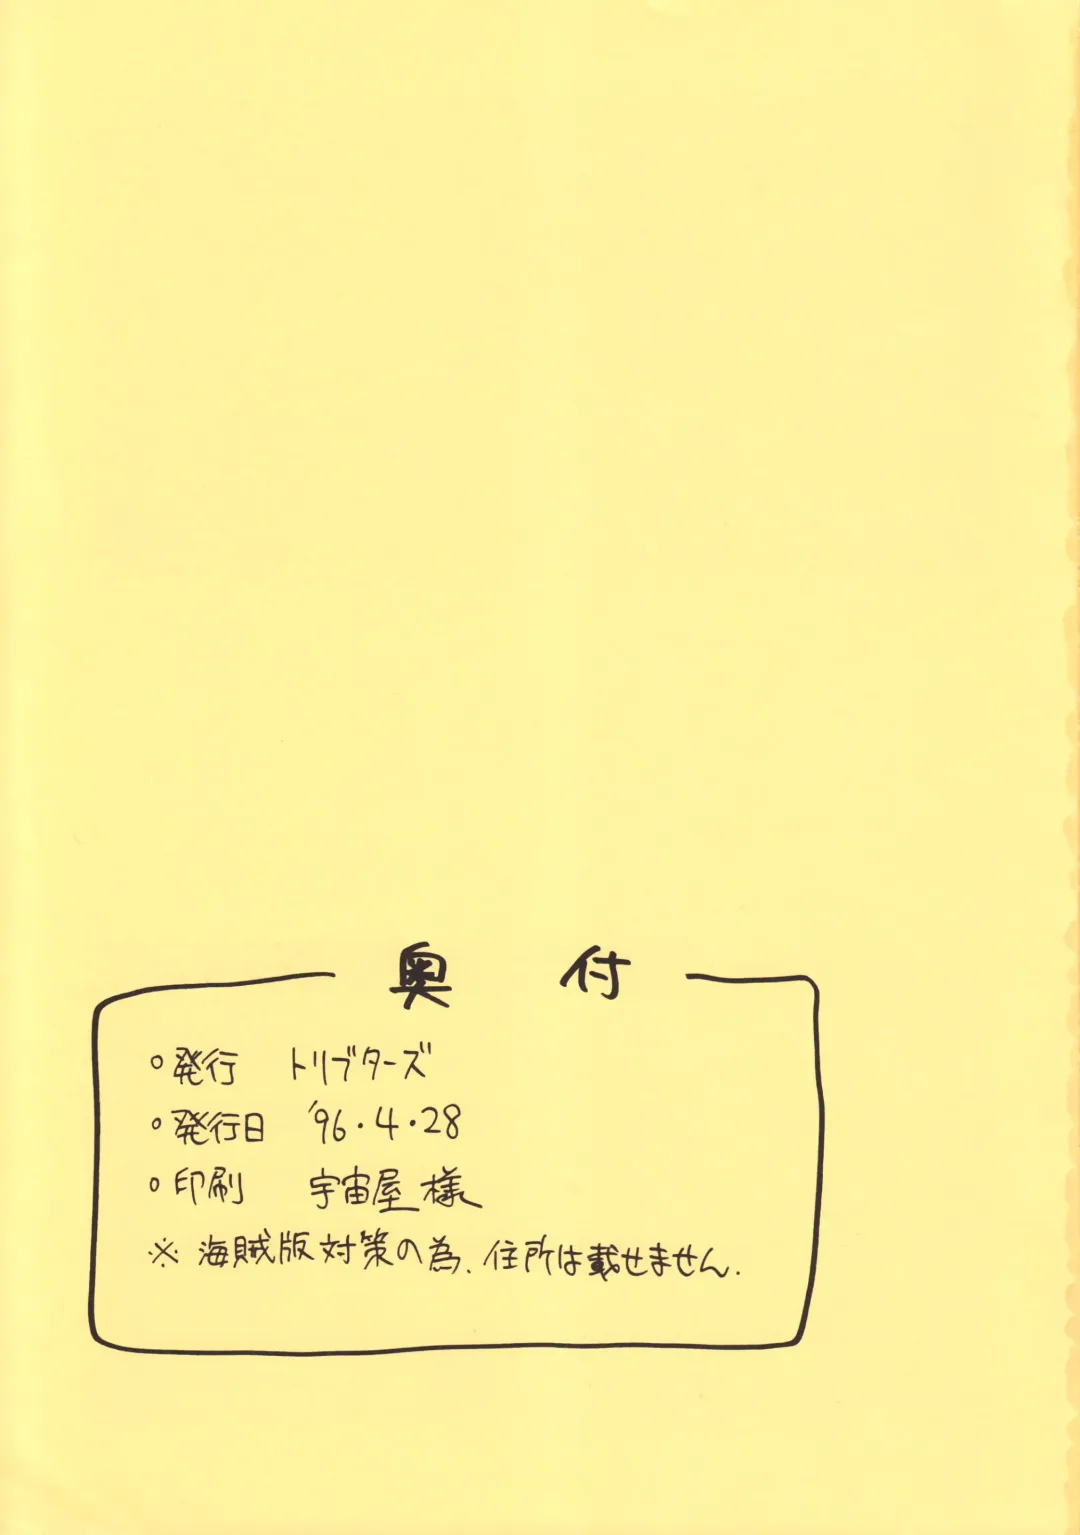 奥付
○発行 トリブターズ
○発行日 '96・4・28
○印刷 宇宙屋様
※海賊版対策の為、住所は載せません.